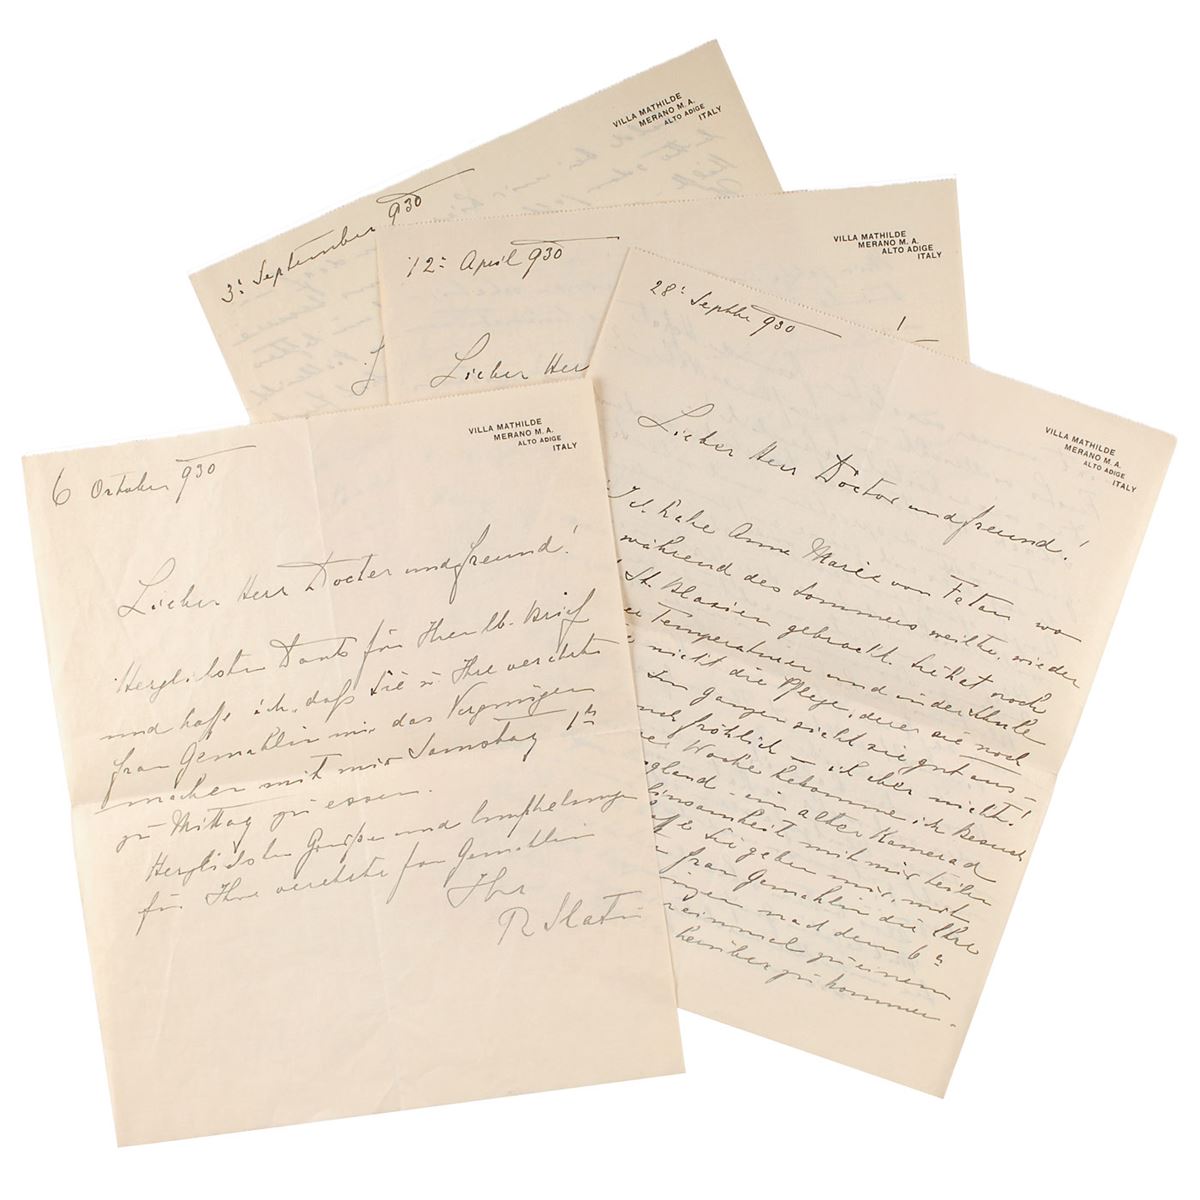 VILLA MATHILDE
MERANO M. A.
ALTO ADIGE
ITALY
3: September 930
VILLA MATHILDE
MERANO M. A.
ALTO ADIGE
ITALY
12: April 930
Lieber Herr
VILLA MATHILDE
MERANO M. A.
ALTO ADIGE
ITALY
28: Septbe 930
Lieber Herr Doctor und freund!
Ich habe Anne Marie von Fetan wo
während des Sommers weilte, wieder
St. Blasien gebracht. Sie hat noch
Temperaturen und in der
nicht die Pflege, derer sie noch
Im ganzen sieht sie gut aus -
fröhlich - ich aber nicht!
Woche bekomme ich Besuch
gland - ein alter Kamerad
Einsamkeit mit mir teilen
Sie geben mir, mit
frau Gemahlin die Ehre
nach dem 6n
einmal zu einem
herüber zu kommen.
VILLA MATHILDE
MERANO M. A.
ALTO ADIGE
ITALY
6 October 930
Lieber Herr Docter und freund!
Herzlichsten Dank für Ihren lb. Brief
und hoffe ich, daß Sie u. Ihre verehrte
frau Gemahlin mir das Vergnügen
machen mit mir Samstag 1h
zu Mittag zu essen.
Herzlichste Grüße und Empfehlungen
für Ihre verehrte frau Gemahlin
Ihr
R Slatin